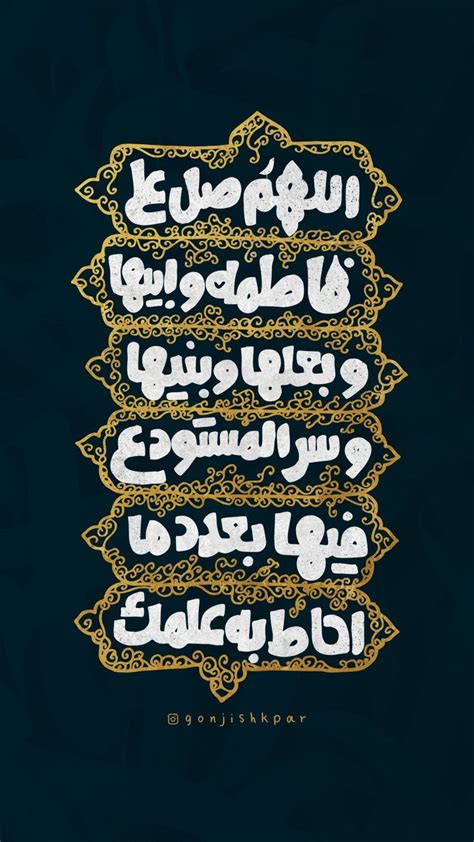 اللهمَ صل علی
فاطمه و ابیها
و بعلها و بنیها
و سر المستَودع
فِیها بعدد ما
احاط به علمك
@gonjishkpar